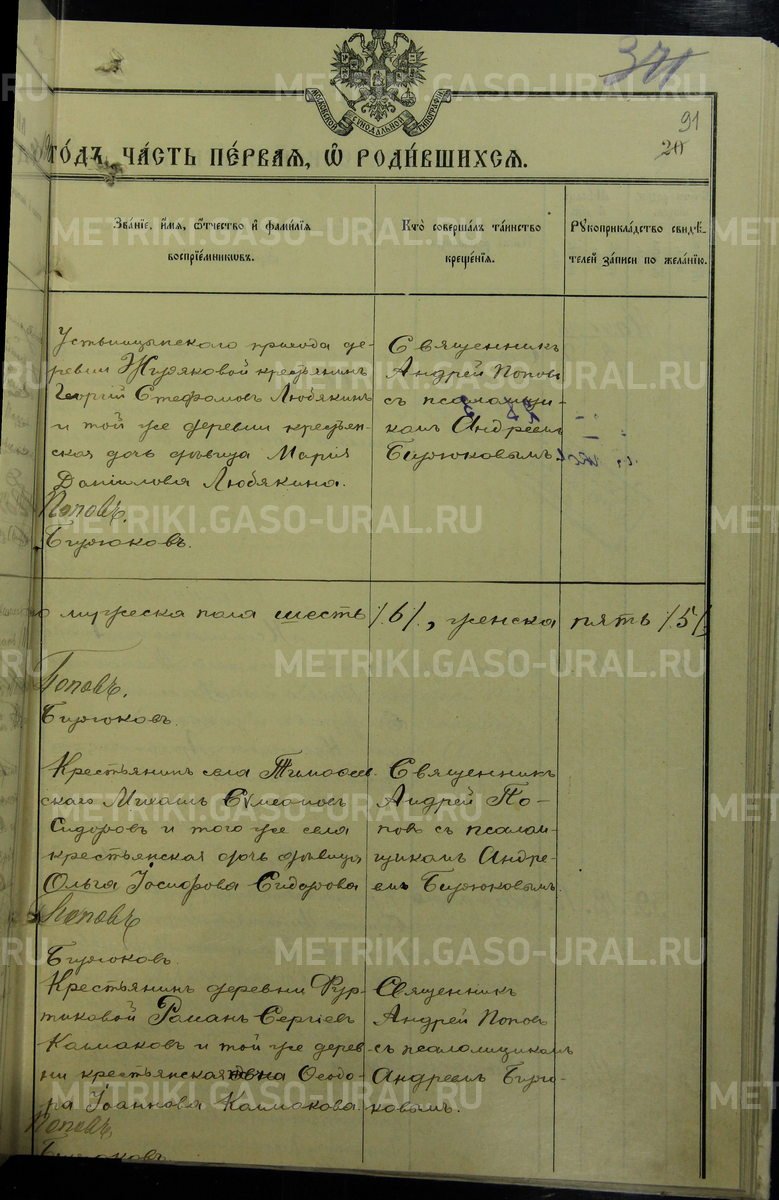 371
91
20
МОСКОВСКОЙ СѴНОДАЛЬНОЙ ТИПОГРАФІИ
ГО́ДЪ, ЧА́СТЬ ПЕ́РВАЯ, Ѡ РОДИ́ВШИХСЯ.
Зва́нїе, и҆́мя, ѻ҆́тчество и҆ фами́лїя
воспрїе́мникѡвъ.
Кто̀ соверша́лъ та́инство
креще́нїя.
Рꙋкоприкла́дство свидѣ́-
телей за́писи по жела́нїю.
прихода де-
ревни Жиряковой крестьянинъ
Георгій Стефановъ Любякинъ
и той же деревни крестьян-
ская дочь дѣвица Марія
Даніилова Любякина.
Поповъ.
Бирюковъ.
Священникъ
Андрей Поповъ
съ псаломщи-
комъ Андреемъ
Бирюковымъ.
о мужеска пола шесть /6/, женска пять /5/
Поповъ.
Бирюковъ.
Крестьянинъ села Тимофеев-
скаго Михаилъ Сумеоновъ
Сидоровъ и того же села
крестьянская дочь дѣвица
Ольга Іосифова Сидорова
Поповъ
Бирюковъ.
Священникъ
Андрей По-
повъ съ псалом-
щикомъ Андре-
емъ Бирюковымъ.
Крестьянинъ деревни Фур-
тиковой Романъ Сергіевъ
Калмаковъ и той же дерев-
ни крестьянская Ѳеодо-
ра Іоаннова Калмакова.
Поповъ.
Бирюковъ.
Священникъ
Андрей Поповъ
съ псаломщикомъ
Андреемъ Бирю-
ковымъ.
METRIKI.GASO-URAL.RU